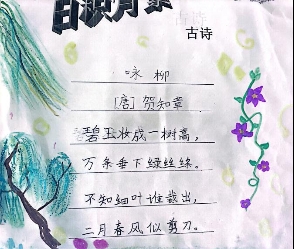 古诗
咏柳
[唐]贺知章
碧玉妆成一树高，
万条垂下绿丝绦。
不知细叶谁裁出，
二月春风似剪刀。